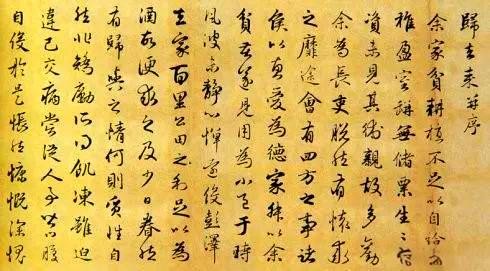 歸去來并序
余家貧耕植不足以自給幼
稚盈室缾無儲粟生生所
資未見其術親故多勸
余為長吏脫然有懷求
之靡途會有四方之事諸
侯以惠愛為德家叔以余
貧苦遂見用為小邑于時
風波未靜心憚遠役彭澤
去家百里公田之利足以為
酒故便求之及少日眷然
有歸與之情何則質性自
然非矯勵所得飢凍雖迫
違己交病嘗從人事皆口腹
自役於是悵然慷慨深愧